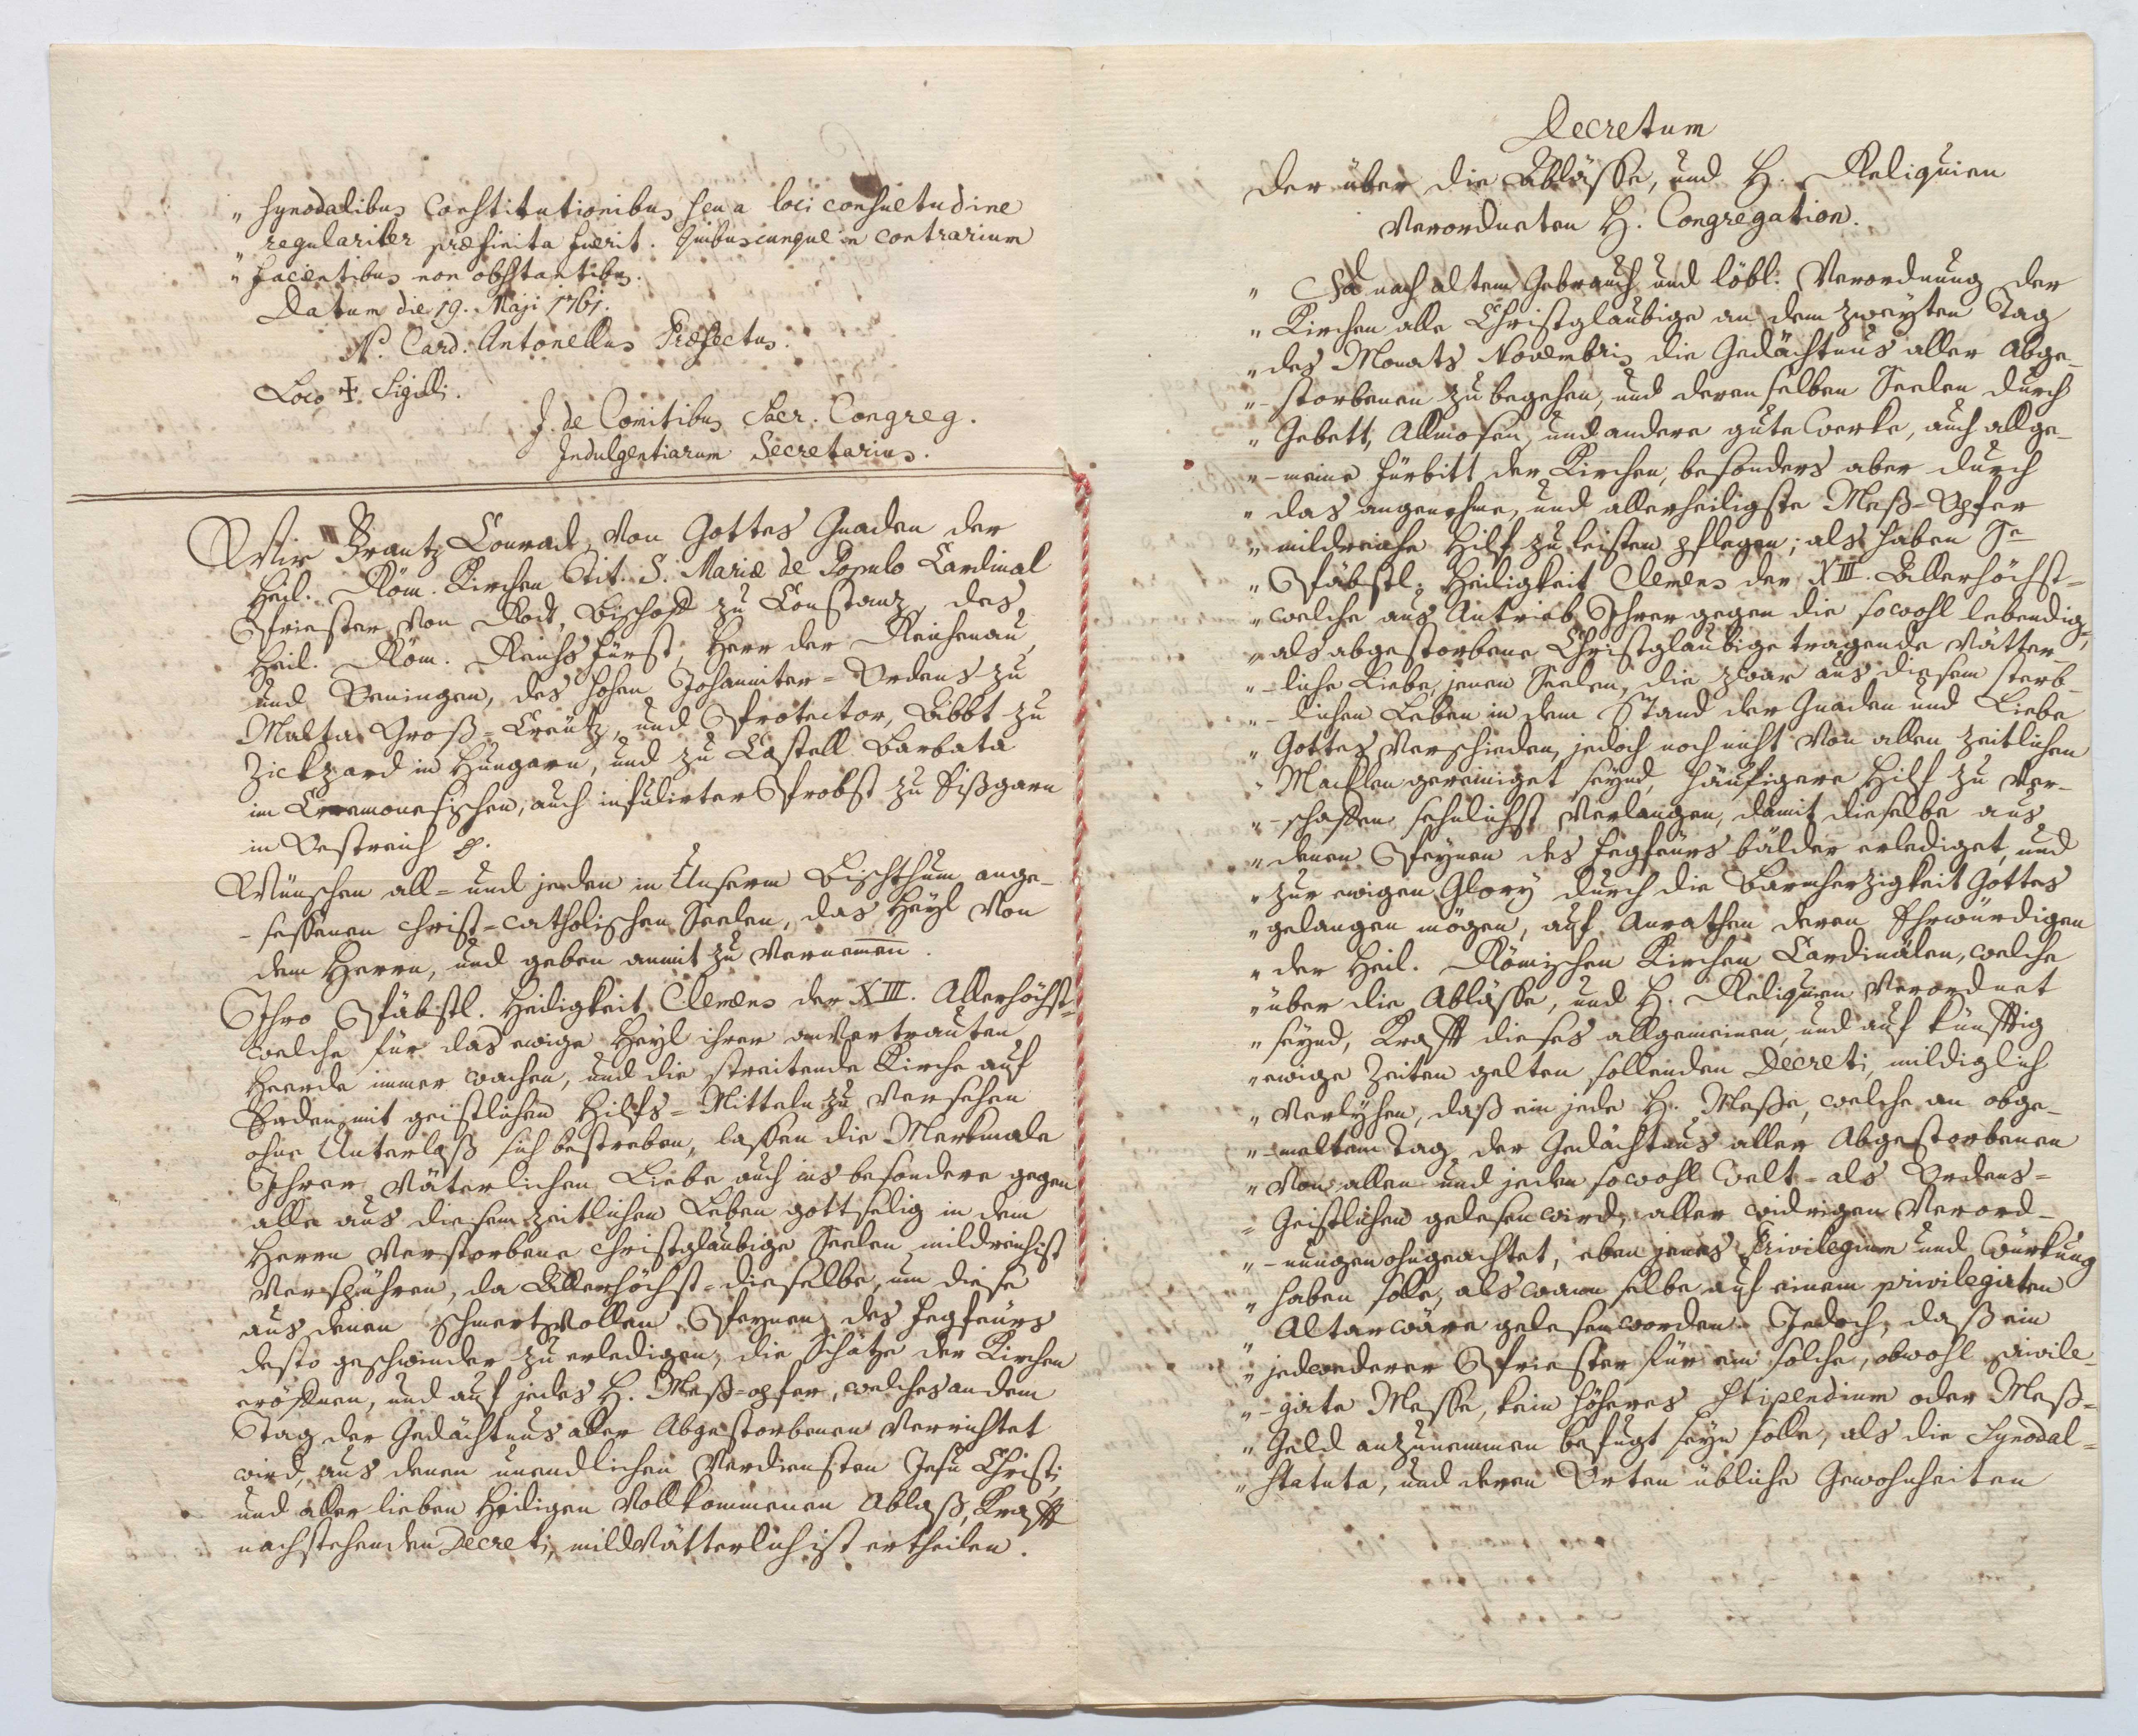 „ Synodalibus Constitutionibus seu a loci consuetudine
„ regulariter præfinita fuerit. Quibuscunque in contrarium
„ facientibus non obstantibus.
Datum die 19. Maji 1761.
N. Card. Antonellus Præfectus.
Loco ✝ Sigilli.
J. de Comitibus Sacr. Congreg.
Indulgentiarum Secretarius.
Wir Frantz Conrad, von Gottes Gnaden der
Heil. Röm. Kirchen Tit. S. Mariæ de Populo Cardinal
Priester von Rodt, Bischoff zu Constanz, des
Heil. Röm. Reichs Fürst, Herr der Reichenau,
und Oeningen, des hohen Johanniter-Ordens zu
Malta Groß-Creütz, und Protector, Abbt zu
Zickzard in Hungarn, und zu Castell Barbata
im Cremonesischen, auch infulirter Probst zu Eißgarn
in Oestreich
Wünschen all- und jeden in Unserm Bischthum ange-
-seßenen christ-catholischen Seelen, das Heyl von
dem Herrn, und geben anmit zu vernemmen.
Ihro Päbstl. Heiligkeit Clemens der XIII. Allerhöchst-
welche für das ewige Heyl ihrer anvertrauten
Heerde immer wachen, und die streitende Kirche auf
Erden mit geistlichen Hilfs-Mitteln zu versehen
ohne Unterlaß sich bestreben, lassen die Merkmale
Ihrer Väterlichen Liebe auch ins besondere gegen
alle aus diesem zeitlichen Leben gottselig in dem
Herrn verstorbene christglaubige Seelen mildreichist
verspühren, da Allerhöchst-dieselbe, um diese
aus denen schmertzvollen Peynen des Fegfeürs
desto geschwinder zu erledigen, die Schätze der Kirchen
eröffnen, und auf jedes H. Meß-opfer, welches an dem
Tag der Gedächtnus aller Abgestorbenen verrichtet
wird, aus denen unendlichen Verdiensten Jesu Christi,
und aller lieben Heiligen vollkommenen Ablaß, Krafft
nachstehenden Decreti, mildvätterlichist ertheilen.
Decretum
der über die Abläße, und H. Reliquien
verordneten H. Congregation.
„ Da nach altem Gebrauch und löbl. Verordnung der
„ Kirchen alle Christglaubige an dem zweyten Tag
„ des Monats Novembris die Gedächtnus aller Abge-
„ -storbenen zu begehen, und derenselben Seelen durch
„ Gebett, Allmosen, und andere gute Werke, auch allge-
„ -meine Fürbitt der Kirchen, besonders aber durch
„ das angenehme, und allerheiligste Meß-Opfer
„ mildreiche Hilf zu leisten pflegen; als haben Se
„ Päbstl. Heiligkeit Clemens der XIII. Allerhöchst-
„ welche aus Antrieb Ihrer gegen die sowohl lebendig-
„ als abgestorbene Christglaubige tragende Vätter-
„ -liche Liebe, jenen Seelen, die zwar aus diesem sterb-
„ -lichen Leben in dem Stand der Gnaden und Liebe
„ Gottes verschieden, jedoch noch nicht von allen zeitlichen
„ Macklen gereiniget seynd, häufigere Hilf zu ver-
„ -schaffen sehnlichst verlangen, damit dieselbe aus
„ denen Peynen des Fegfeürs bälder erlediget, und
„ zur ewigen Glory durch die Barmherzigkeit Gottes
„ gelangen mögen, auf Anrathen deren Ehrwürdigen
„ der Heil. Römischen Kirchen Cardinälen, welche
„ über die Abläße, und H. Reliquien verordnet
„ seynd, Krafft dieses allgemeinen, und auf künfftig
„ ewige Zeiten gelten sollenden Decreti, mildiglich
„ verlyhen, daß ein jede H. Messe, welche an obge-
„ -meltem Tag der Gedächtnus aller Abgestorbenen
„ von allen und jeden sowohl Welt- als Ordens-
„ Geistlichen gelesen wird, aller widrigen Verord-
„ -nungen ohngeachtet, eben jenes Privilegium und Würkung
„ haben solle, als wann selbe auf einem privilegirten
„ Altar wäre gelesen worden. Jedoch, daß ein
„ jedwederer Priester für ein solche, obwohl privile-
„ -girte Messe, kein höheres Stipendium oder Meß-
„ Geld anzunemmen befugt seyn solle, als die Synodal-
„ Statuta, und deren Orten übliche Gewohnheiten